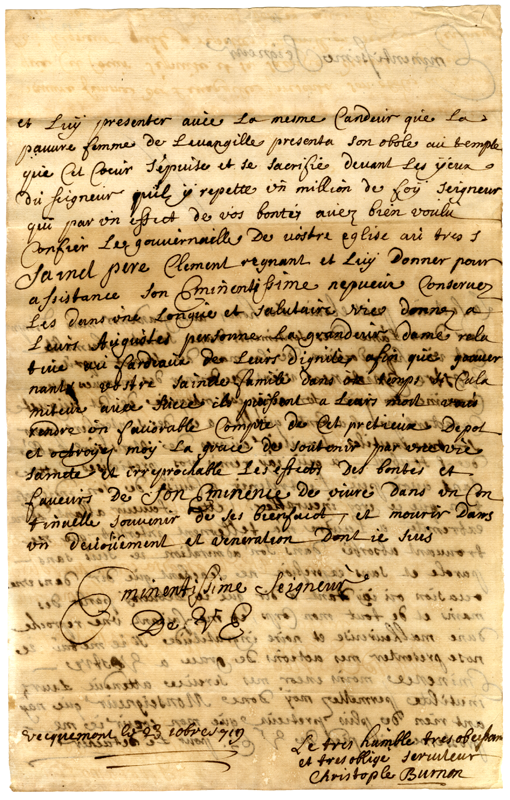 et Luy presenter avec La mesme Candeur que La
pauvre femme de Levangille presenta son obole au temple
que Cet Coeur s'epuise et se sacrifie devant Les yeux
du seigneur quil y repette vn million de foy seigneur
qui par vn effect de vos bontes avez bien voulu
Confier Le gouvernaille De vostre eglise au tres S
sainct pere Clement regnant et Luy donner pour
assistance son Eminentissime nepveur Conservez
Les dans vne Longue et salutaire vie donnez a
Leurs Augustes personne La grandeur dame rela
tive au fardiaux de Leurs Dignites afin que gouver
nants vostre saincte famille dans ce temps Cala
miteux avec succe ils puissent a Leurs mort vous
rendre vn favorable Compte de Cet pretieux Depot
et octroyez moy La grace de soutenir par vne vie
saincte et irreprochable Les effects Des bontes et
faveurs De son Eminence de vivre Dans vn Con
tinuelle souvenir de ses bienfaict, et mourir dans
vn devouement et veneration Dont ie suis
Eminentissime Seigneur
De V. E
vecquemont le 23 obres 719
Le tres humble tres obeissant
et tres oblige serviteur
Christople Burnon